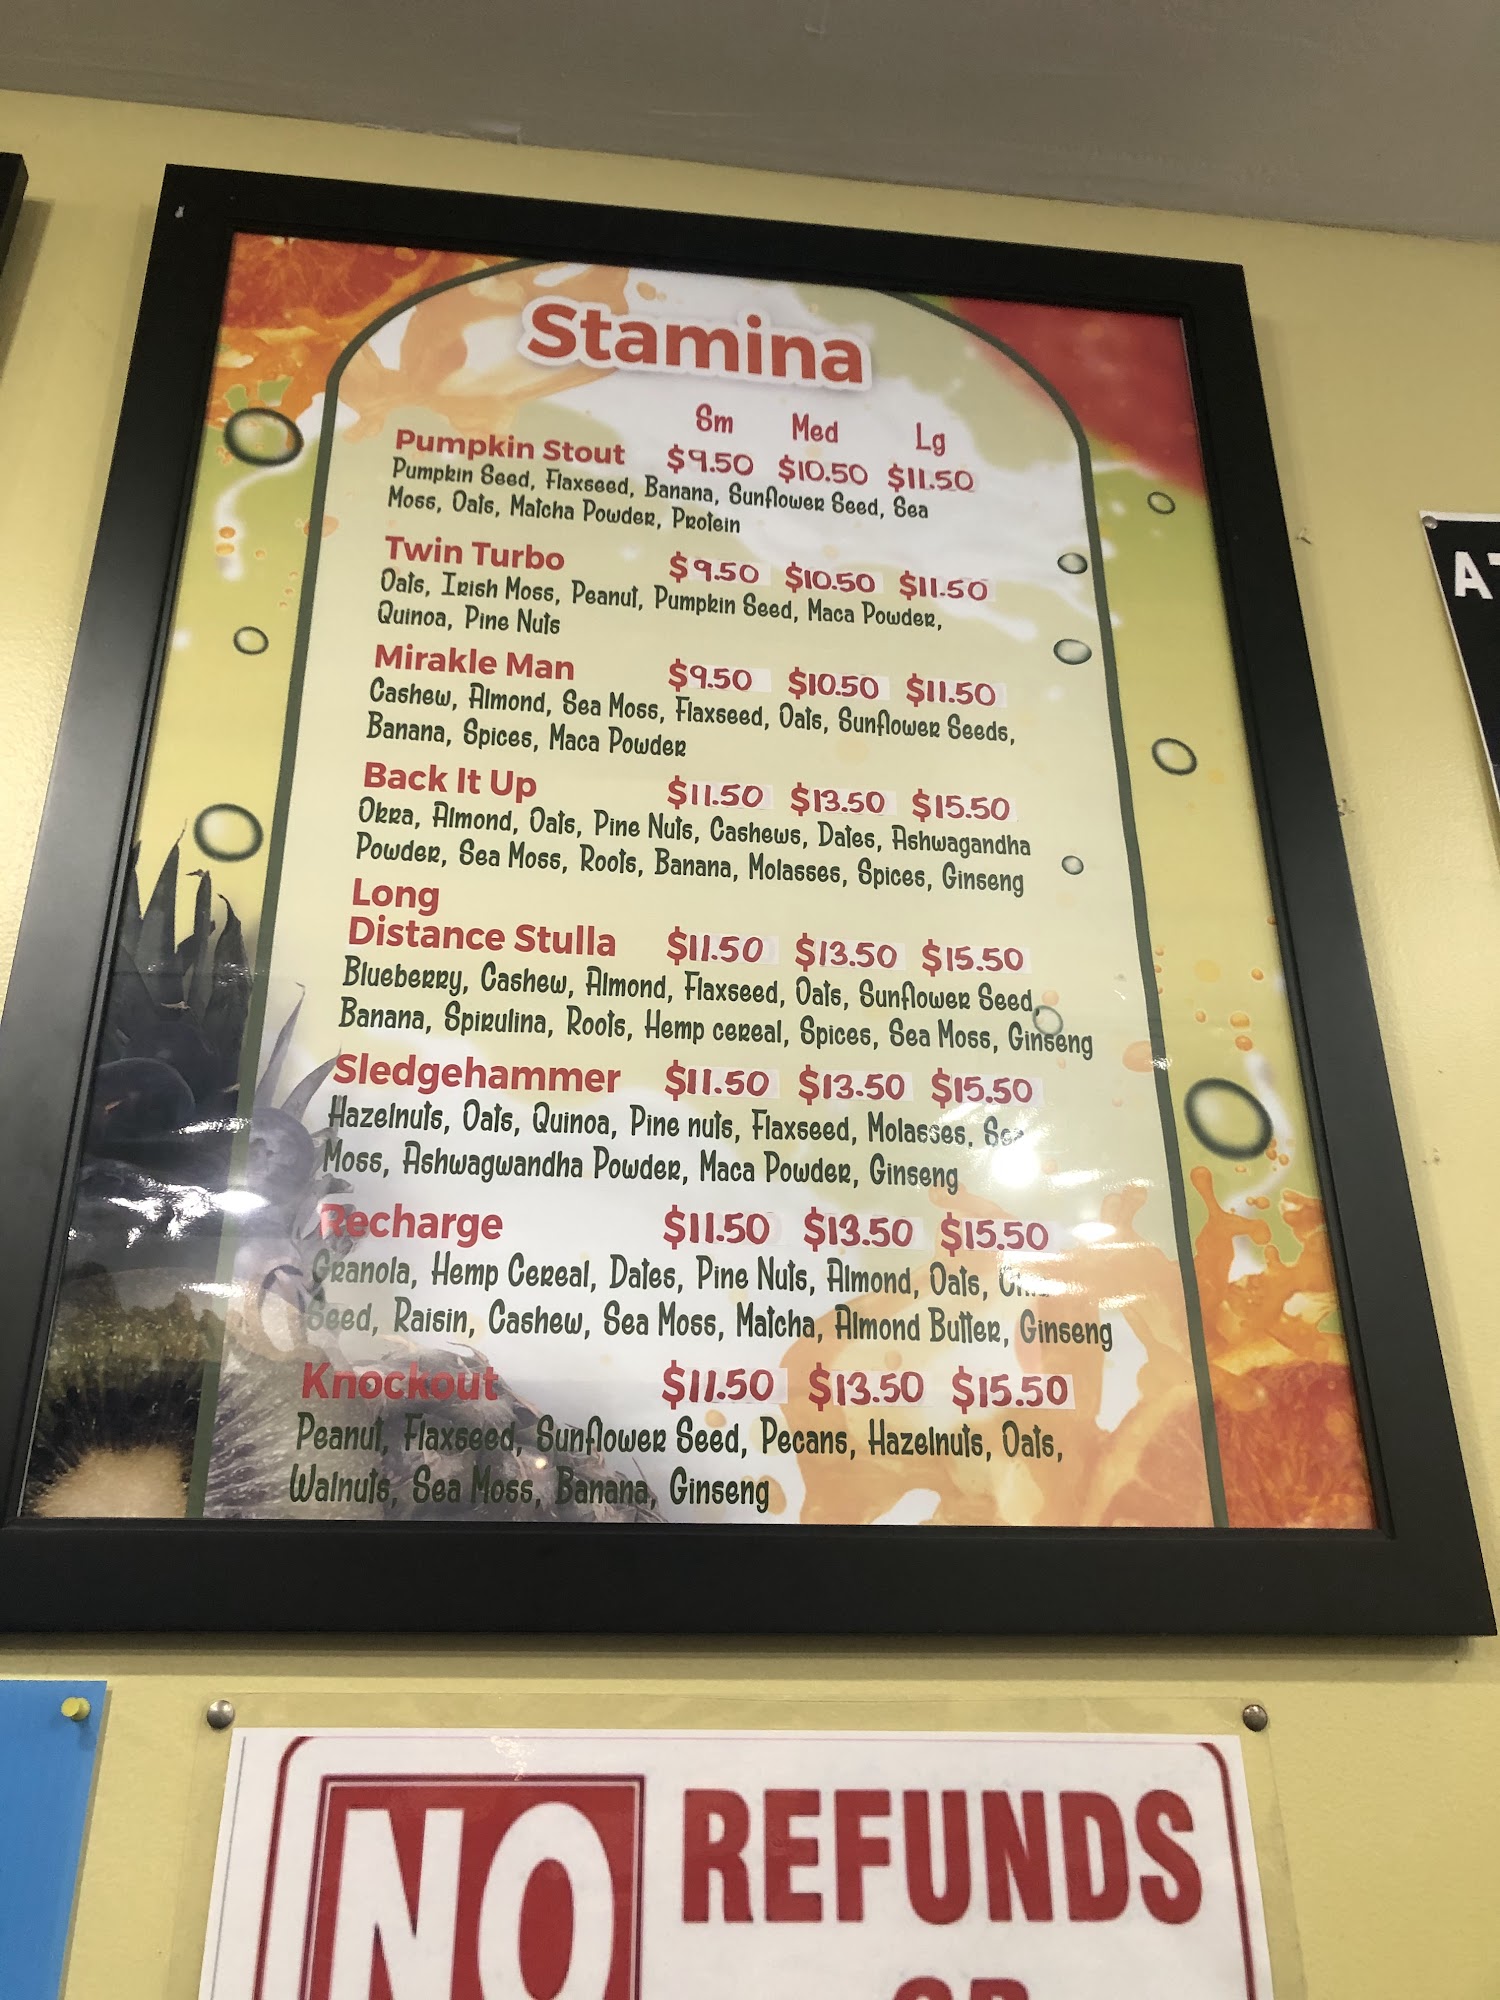 Stamina
Sm Med Lg
Pumpkin Stout $9.50 $10.50 $11.50
Pumpkin Seed, Flaxseed, Banana, Sunflower Seed, Sea
Moss, Oats, Matcha Powder, Protein
Twin Turbo $9.50 $10.50 $11.50
Oats, Irish Moss, Peanut, Pumpkin Seed, Maca Powder,
Quinoa, Pine Nuts
Mirakle Man $9.50 $10.50 $11.50
Cashew, Almond, Sea Moss, Flaxseed, Oats, Sunflower Seeds,
Banana, Spices, Maca Powder
Back It Up $11.50 $13.50 $15.50
Okra, Almond, Oats, Pine Nuts, Cashews, Dates, Ashwagandha
Powder, Sea Moss, Roots, Banana, Molasses, Spices, Ginseng
Long
Distance Stulla $11.50 $13.50 $15.50
Blueberry, Cashew, Almond, Flaxseed, Oats, Sunflower Seed,
Banana, Spirulina, Roots, Hemp cereal, Spices, Sea Moss, Ginseng
Sledgehammer $11.50 $13.50 $15.50
Hazelnuts, Oats, Quinoa, Pine nuts, Flaxseed, Molasses, Sea
Moss, Ashwagwandha Powder, Maca Powder, Ginseng
Recharge $11.50 $13.50 $15.50
Granola, Hemp Cereal, Dates, Pine Nuts, Almond, Oats,
Seed, Raisin, Cashew, Sea Moss, Matcha, Almond Butter, Ginseng
Knockout $11.50 $13.50 $15.50
Peanut, Flaxseed, Sunflower Seed, Pecans, Hazelnuts, Oats,
Walnuts, Sea Moss, Banana, Ginseng
NO REFUNDS
OR